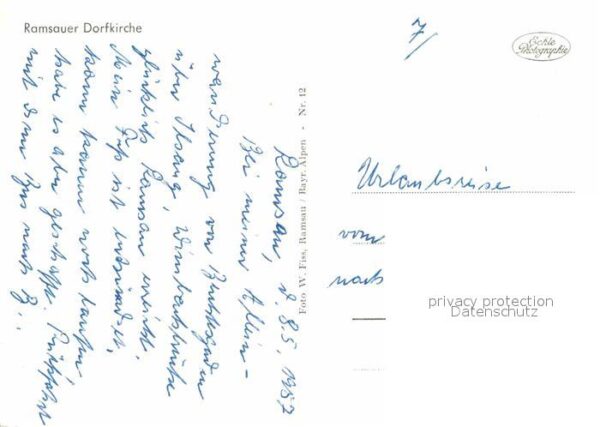 Ramsauer Dorfkirche
7/
Echte
Photographie
Ramsau, d. 8.5.1957
Bei meiner Allein-
wanderung von Berchtesgaden
über Ilsank, Wimbachbrücke
glücklich Ramsau erreicht.
Mein Fuß ist entzündet,
kann kaum noch laufen,
habe es aber geschafft. Rückfahrt
mit dem Bus nach B...
Foto W. Fiss, Ramsau / Bayr. Alpen - Nr. 12
Urlaubsreise
vom
nach
privacy protection
Datenschutz